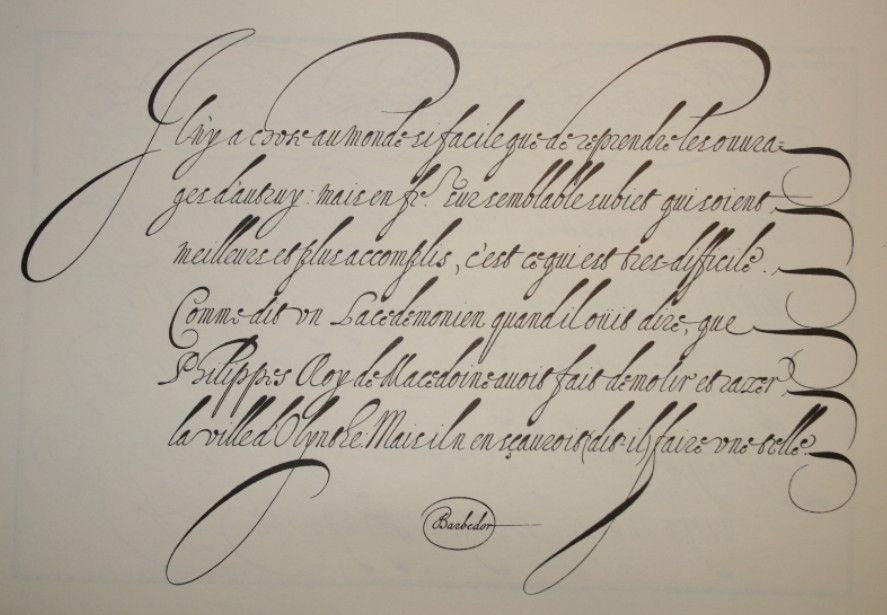 Il n'y a chose au monde si facile que de reprendre les ouura=
ges d'autruy: mais en fre. sur semblable subiet qui soient
meilleurs et plus accomplis, c'est ce qui est tres-difficile.
Comme dit vn Lacedemonien quand il oüit dire, que
Philippes Roy de Macedoine auoit fait demolir et razer
la ville d'Olynthe. Mais il n'en sçauroit (dit-il) faire vne telle.
Barbedor